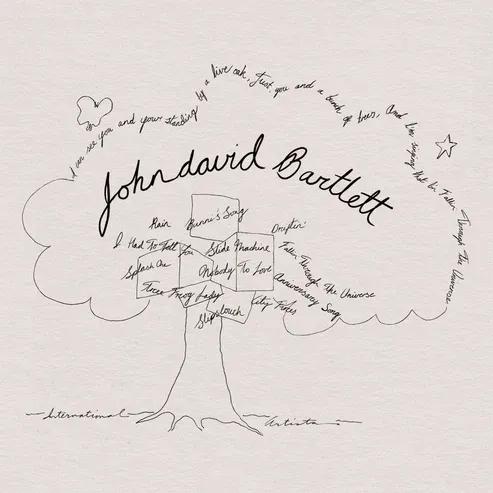 I can see you and your standing by a live oak, Just you and a bunch of trees, And I'm singing that I'm Fallin Through The Universe
Johndavid Bartlett
Rain
Bunni's Song
Driftin'
I Had To Tell You
Slide Machine
Splash One
Nobody To Love
Fallin Through The Universe
Tree Frog Lady
Anniversary Song
Slipslouch
City Fires
International Artists